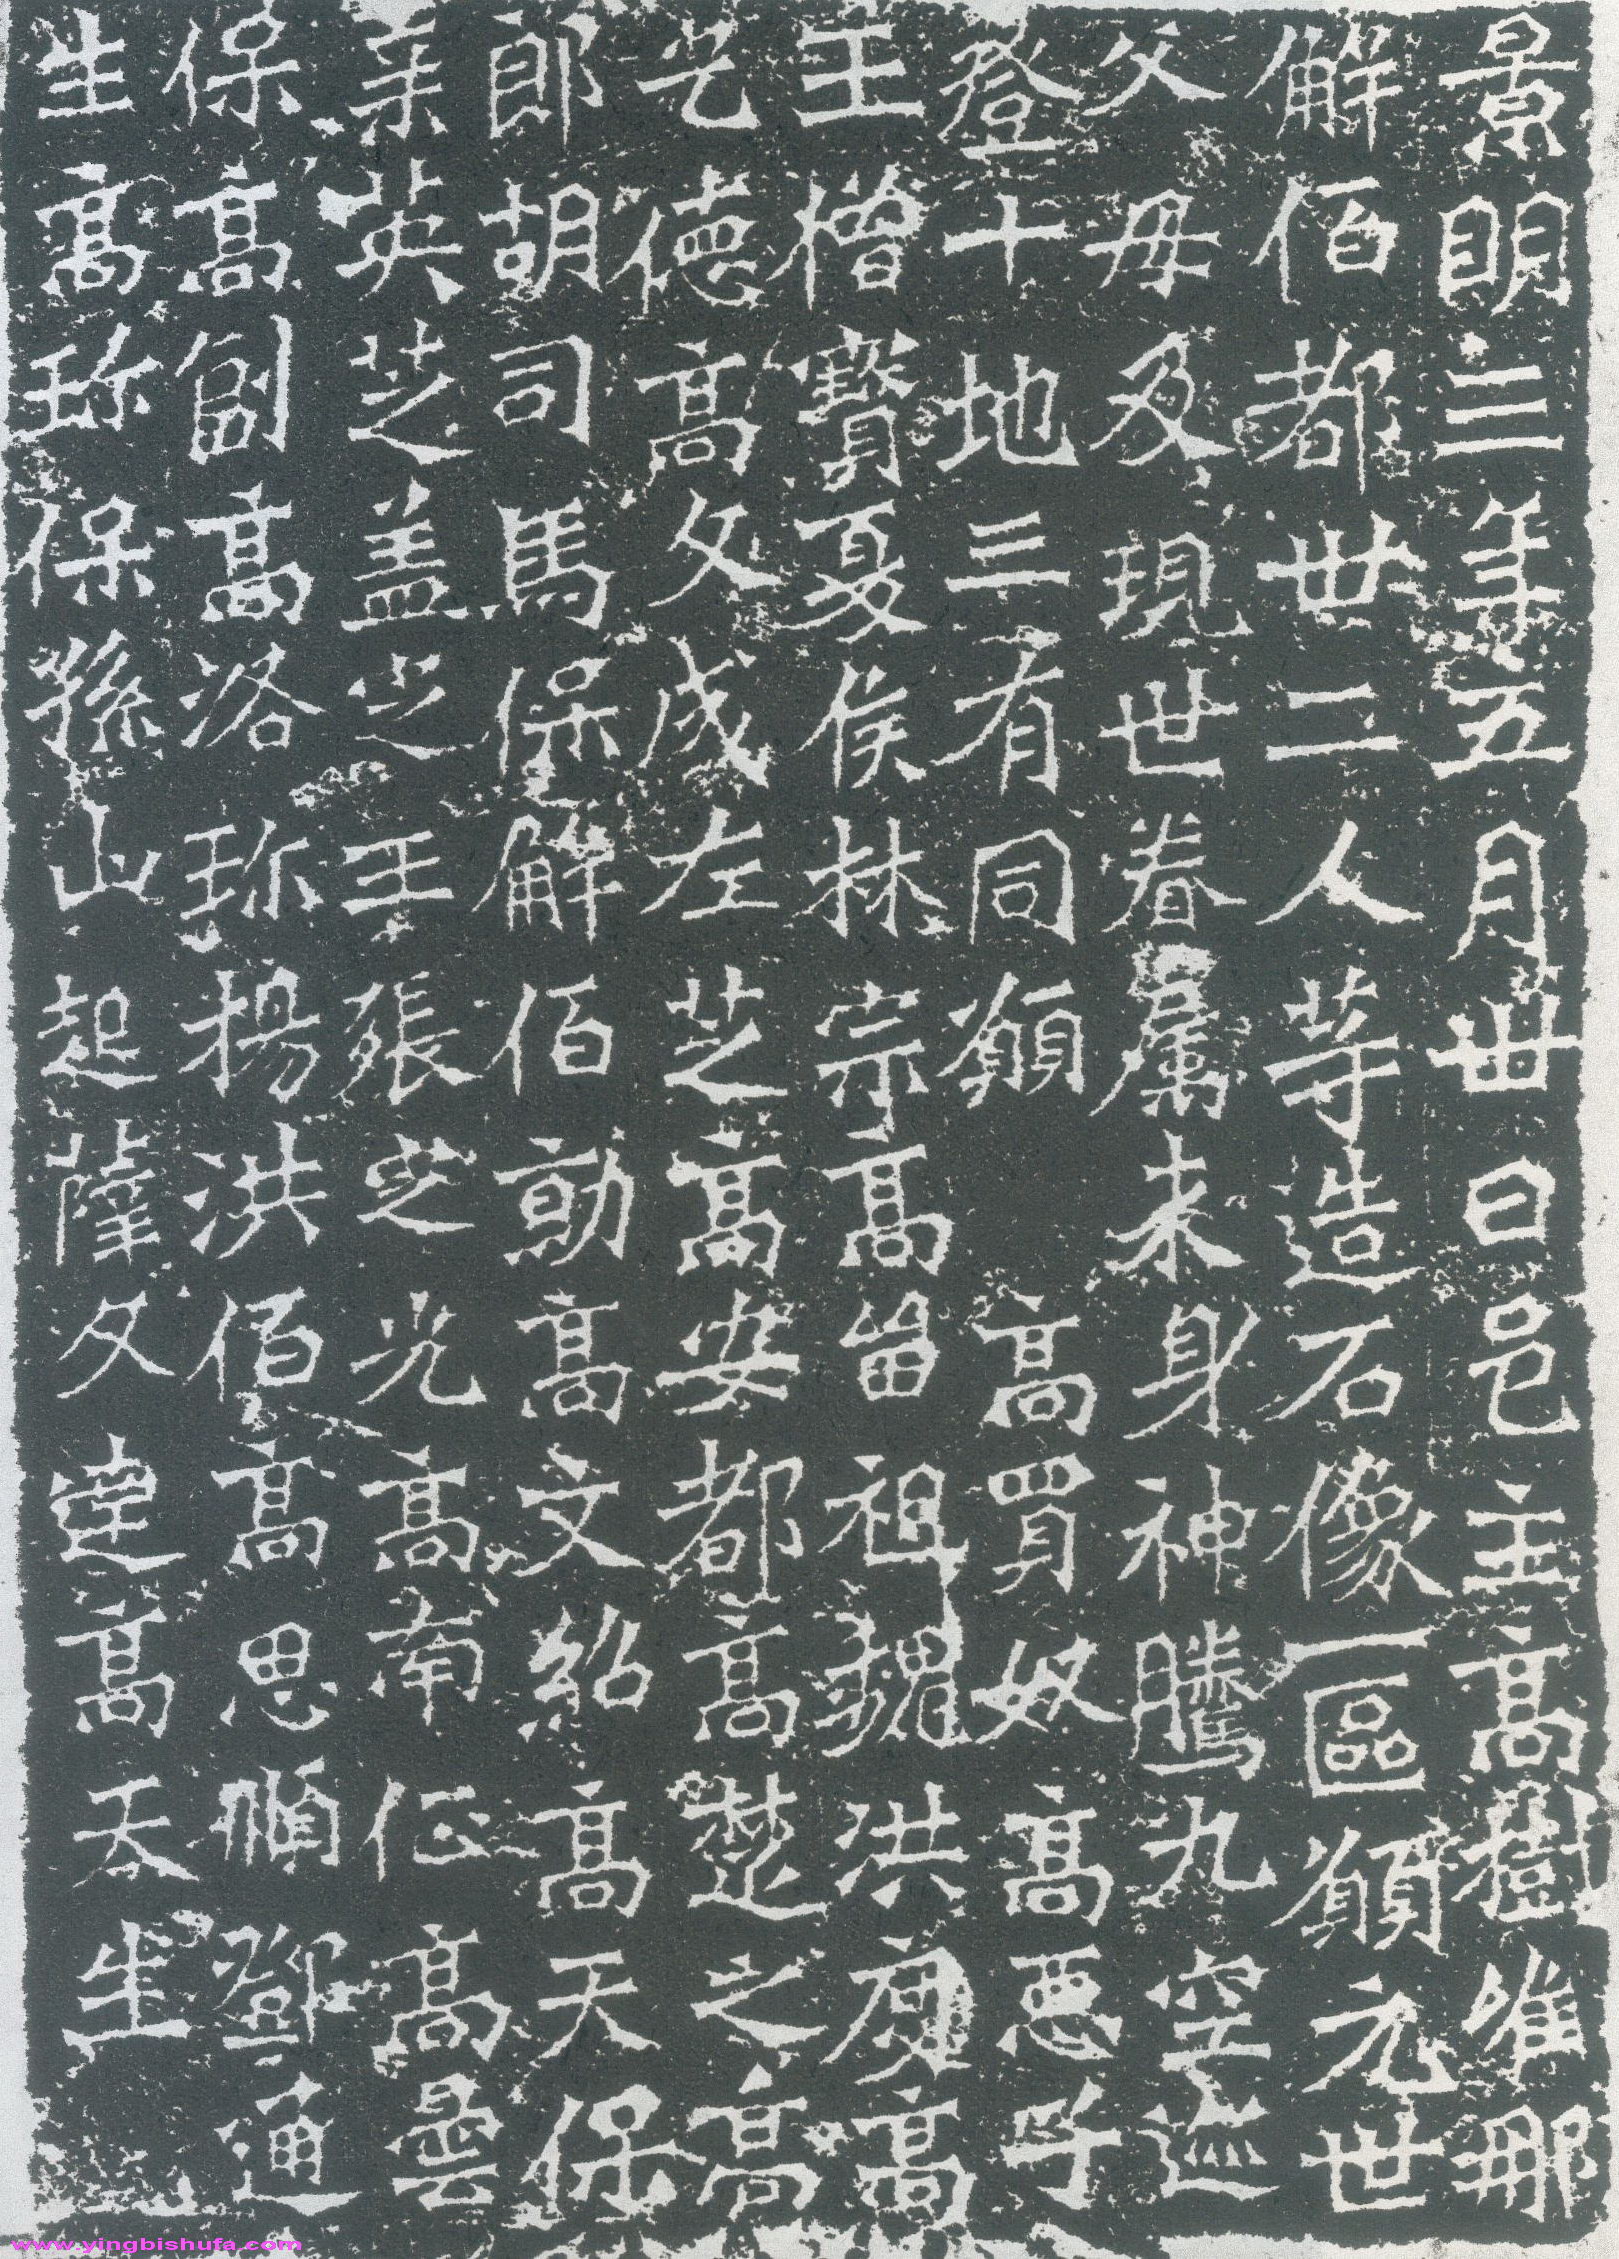 景明三年五月卅日邑主高樹唯那
解佰都卅二人等造石像一區願元世
父母及現世眷屬来身神騰九空迊
登十地三有同願高買奴高惡子
王僧寶夏侯林宗高留祖魏洪度高
乞德高文成左芝高安都高楚之高
郎胡司馬保解佰勍高文紹高天保
英芝盖之王張芝光高南征高曇
保高副高洛珎楊洪佰高思順鄧通
生高珎保孫山起文達高天生
www.yingbishufa.com